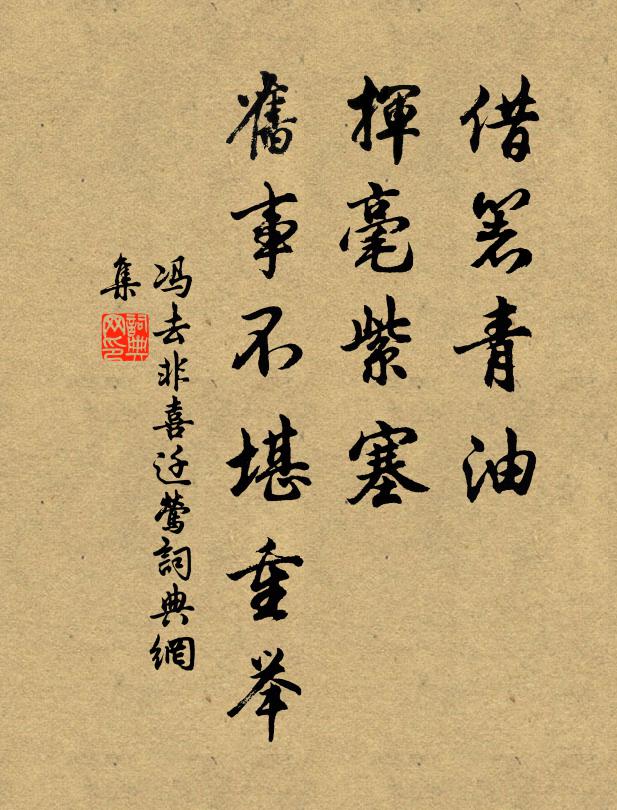 借箸青油
揮毫紫塞
舊事不堪重举
冯去非喜迁莺詞典網
集
詞典网印